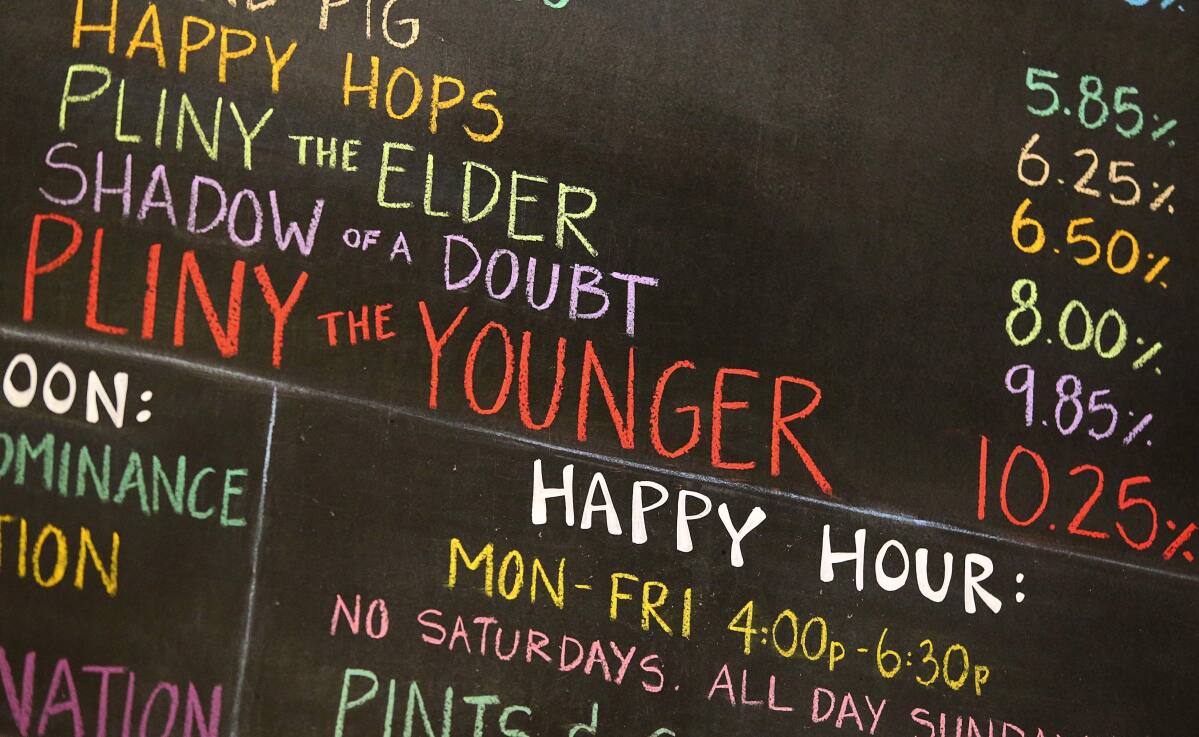 5.85%
PIG 6.25%
HAPPY HOPS 6.50%
PLINY THE ELDER 8.00%
SHADOW OF A DOUBT 9.85%
PLINY THE YOUNGER 10.25%
OON:
OMINANCE
TION
NATION
HAPPY HOUR:
MON-FRI 4:00P-6:30P
NO SATURDAYS. ALL DAY SUNDA
PINTS &